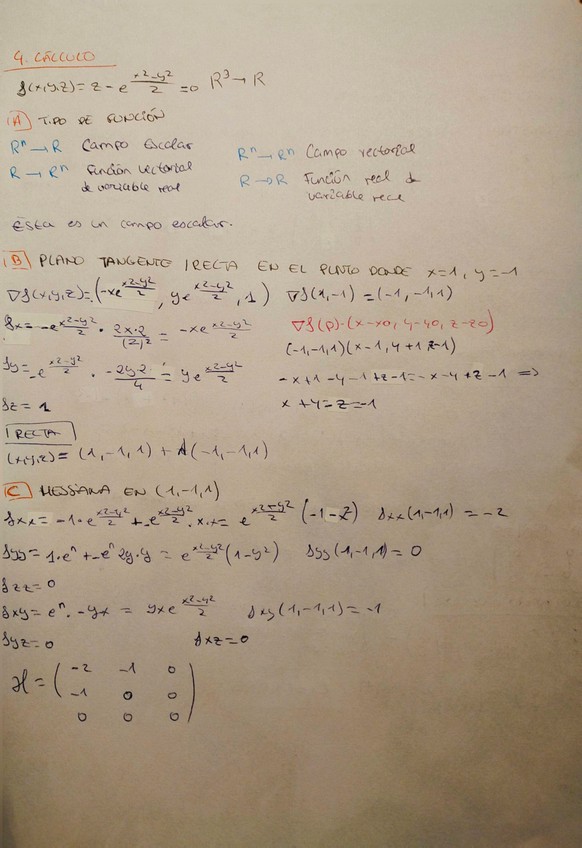 4. CÁLCULO
f(x,y,z) = z - e^((x²-y²)/2) = 0 R³ → R
(A) TIPO DE FUNCIÓN
Rⁿ → R Campo Escalar
Rⁿ → Rⁿ Campo vectorial
R → Rⁿ Función Vectorial de variable real
R → R Función real de variable real
Esta es un campo escalar.
(B) PLANO TANGENTE / RECTA EN EL PUNTO DONDE x=1, y=-1
∇f(x,y,z) = (-xe^((x²-y²)/2), ye^((x²-y²)/2), 1) ∇f(1,-1) = (-1,-1,1)
fx = -e^((x²-y²)/2) · 2x·2/(2)² = -xe^((x²-y²)/2)
∇f(p)·(x-x0, y-y0, z-z0)
(-1,-1,1)(x-1, y+1 z-1)
fy = -e^((x²-y²)/2) · -2y2/4 = ye^((x²-y²)/2)
-x+1-y-1+z-1 = -x-y+z-1 ⇒
fz = 1
x+y-z=-1
RECTA
(x,y,z) = (1,-1,1) + λ(-1,-1,1)
(C) HESSIANA EN (1,-1,1)
fxx = -1·e^((x²-y²)/2) + -e^((x²-y²)/2)·x·x = e^((x²-y²)/2) (-1-x²) fxx(1,-1,1) = -2
fyy = 1·eⁿ + -eⁿ 2y·y = e^((x²-y²)/2) (1-y²) fyy(1,-1,1) = 0
fzz = 0
fxy = eⁿ · -yx = yxe^((x²-y²)/2) fxy(1,-1,1) = -1
fyz = 0 fxz = 0
H = ( -2 -1 0
-1 0 0
0 0 0 )